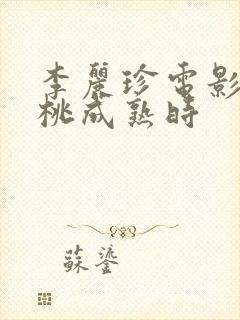 李麗珍電影
桃成熟時
蘇鎏